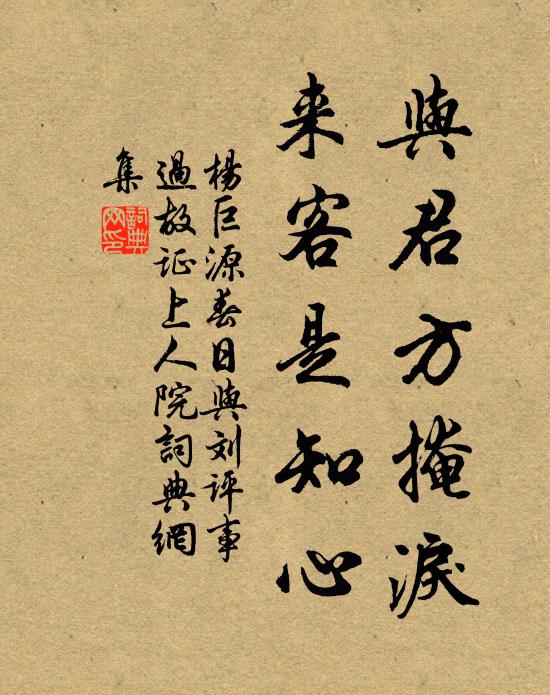 與君方掩淚
来客是知心
楊巨源春日與刘评事
過故证上人院詞典網
集
詞典
网印